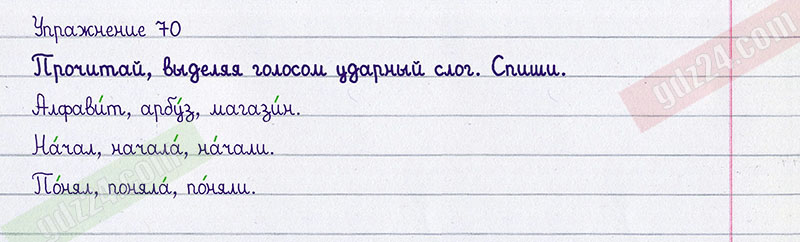 Упражнение 70
Прочитай, выделяя голосом ударный слог. Спиши.
Алфави́т, арбу́з, магази́н.
На́чал, начала́, на́чали.
По́нял, поняла́, по́няли.
gdz24.com
gdz24.com